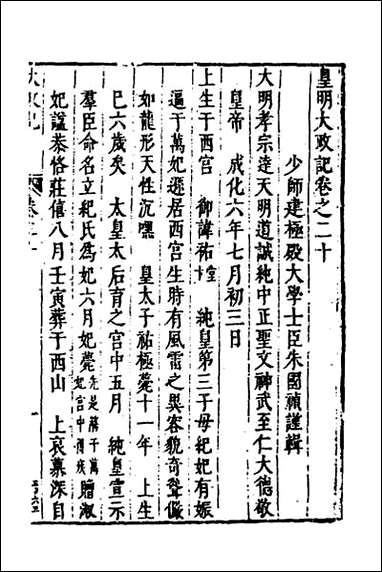 皇明大政記卷之二十
少師建極殿大學士臣朱國禎謹輯
大明孝宗達天明道誠純中正聖文神武至仁大德敬
皇帝 成化六年七月初三日
上生于西宫 御諱祐樘 純皇第三子母紀妃有娠
逼于萬妃遜居西宫生時有風雷之異容貌奇聳儼
如龍形天性沉嘿 皇太子祐極薨十一年 上生
已六歲矣 太皇太后育之宫中五月 純皇宣示
羣臣命名立紀氏爲妃六月妃薨 贈淑
妃諡恭恪莊僖八月壬寅葬于西山 上哀慕深自
大政記